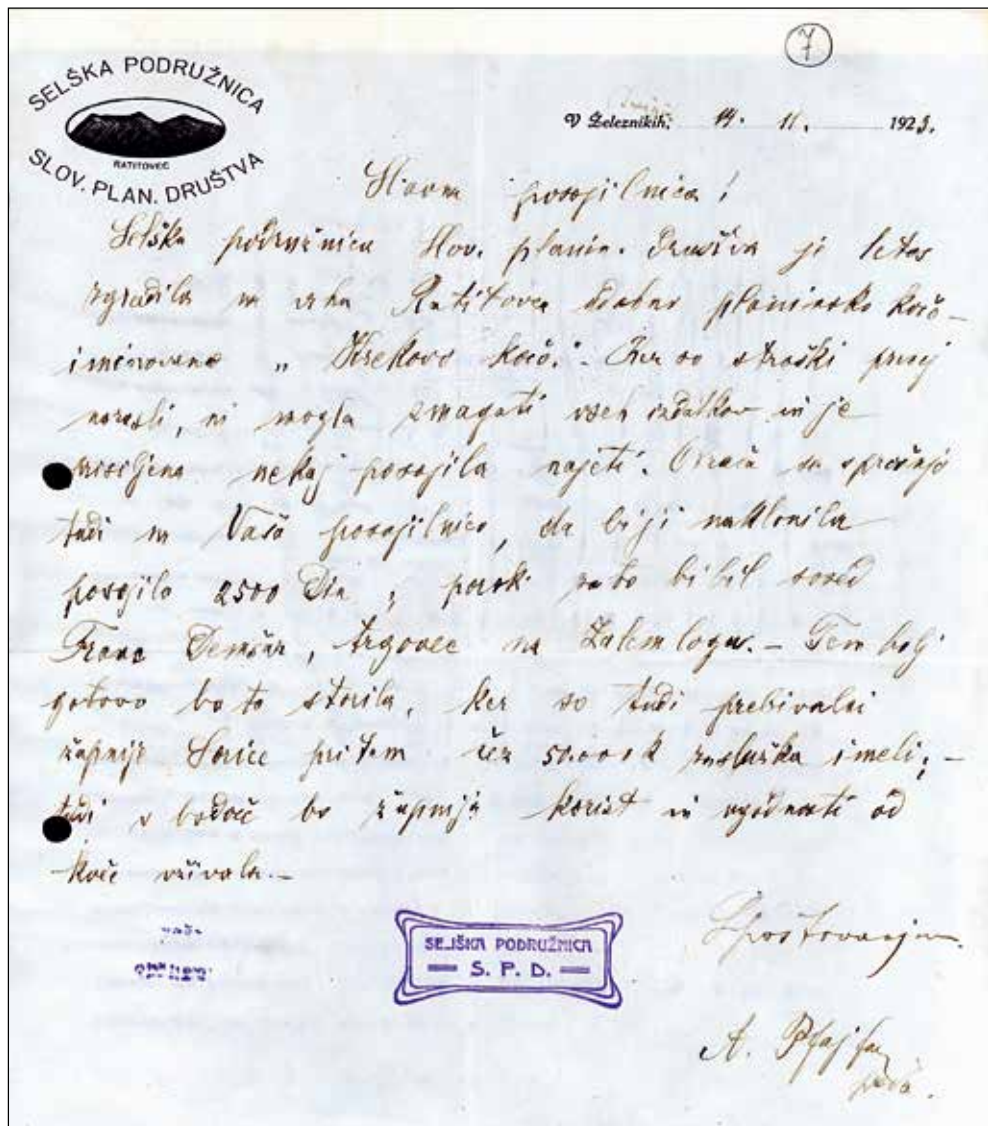 7
SELŠKA PODRUŽNICA
RATITOVEC
SLOV. PLAN. DRUŠTVA
V Železnikih, 14. 11. 1923.
Slavna posojilnica!
Selška podružnica Slov. planin. društva je letos
zgradila na vrhu Ratitovca udobno planinsko kočo
imenovano „Krekovo kočo". Ker so stroški precej
narasli, ni mogla zmagati vseh izdatkov in je
prisiljena nekaj posojila najeti. Obrača se s prošnjo
tudi na Vašo posojilnico, da bi ji naklonila
posojilo 2500 Din, porok za to bi bil sosed
Franc Demšar, trgovec na Zalem logu. – Tem bolj
gotovo bo to storila, ker so tudi prebivalci
župnije Sorice pri tem čez 50.000 K zaslužka imeli; –
tudi v bodoče bo župnija korist in ugodnosti od
koče uživala. –
SELŠKA PODRUŽNICA
S. P. D.
Spoštovanjem
A. Pfajfar